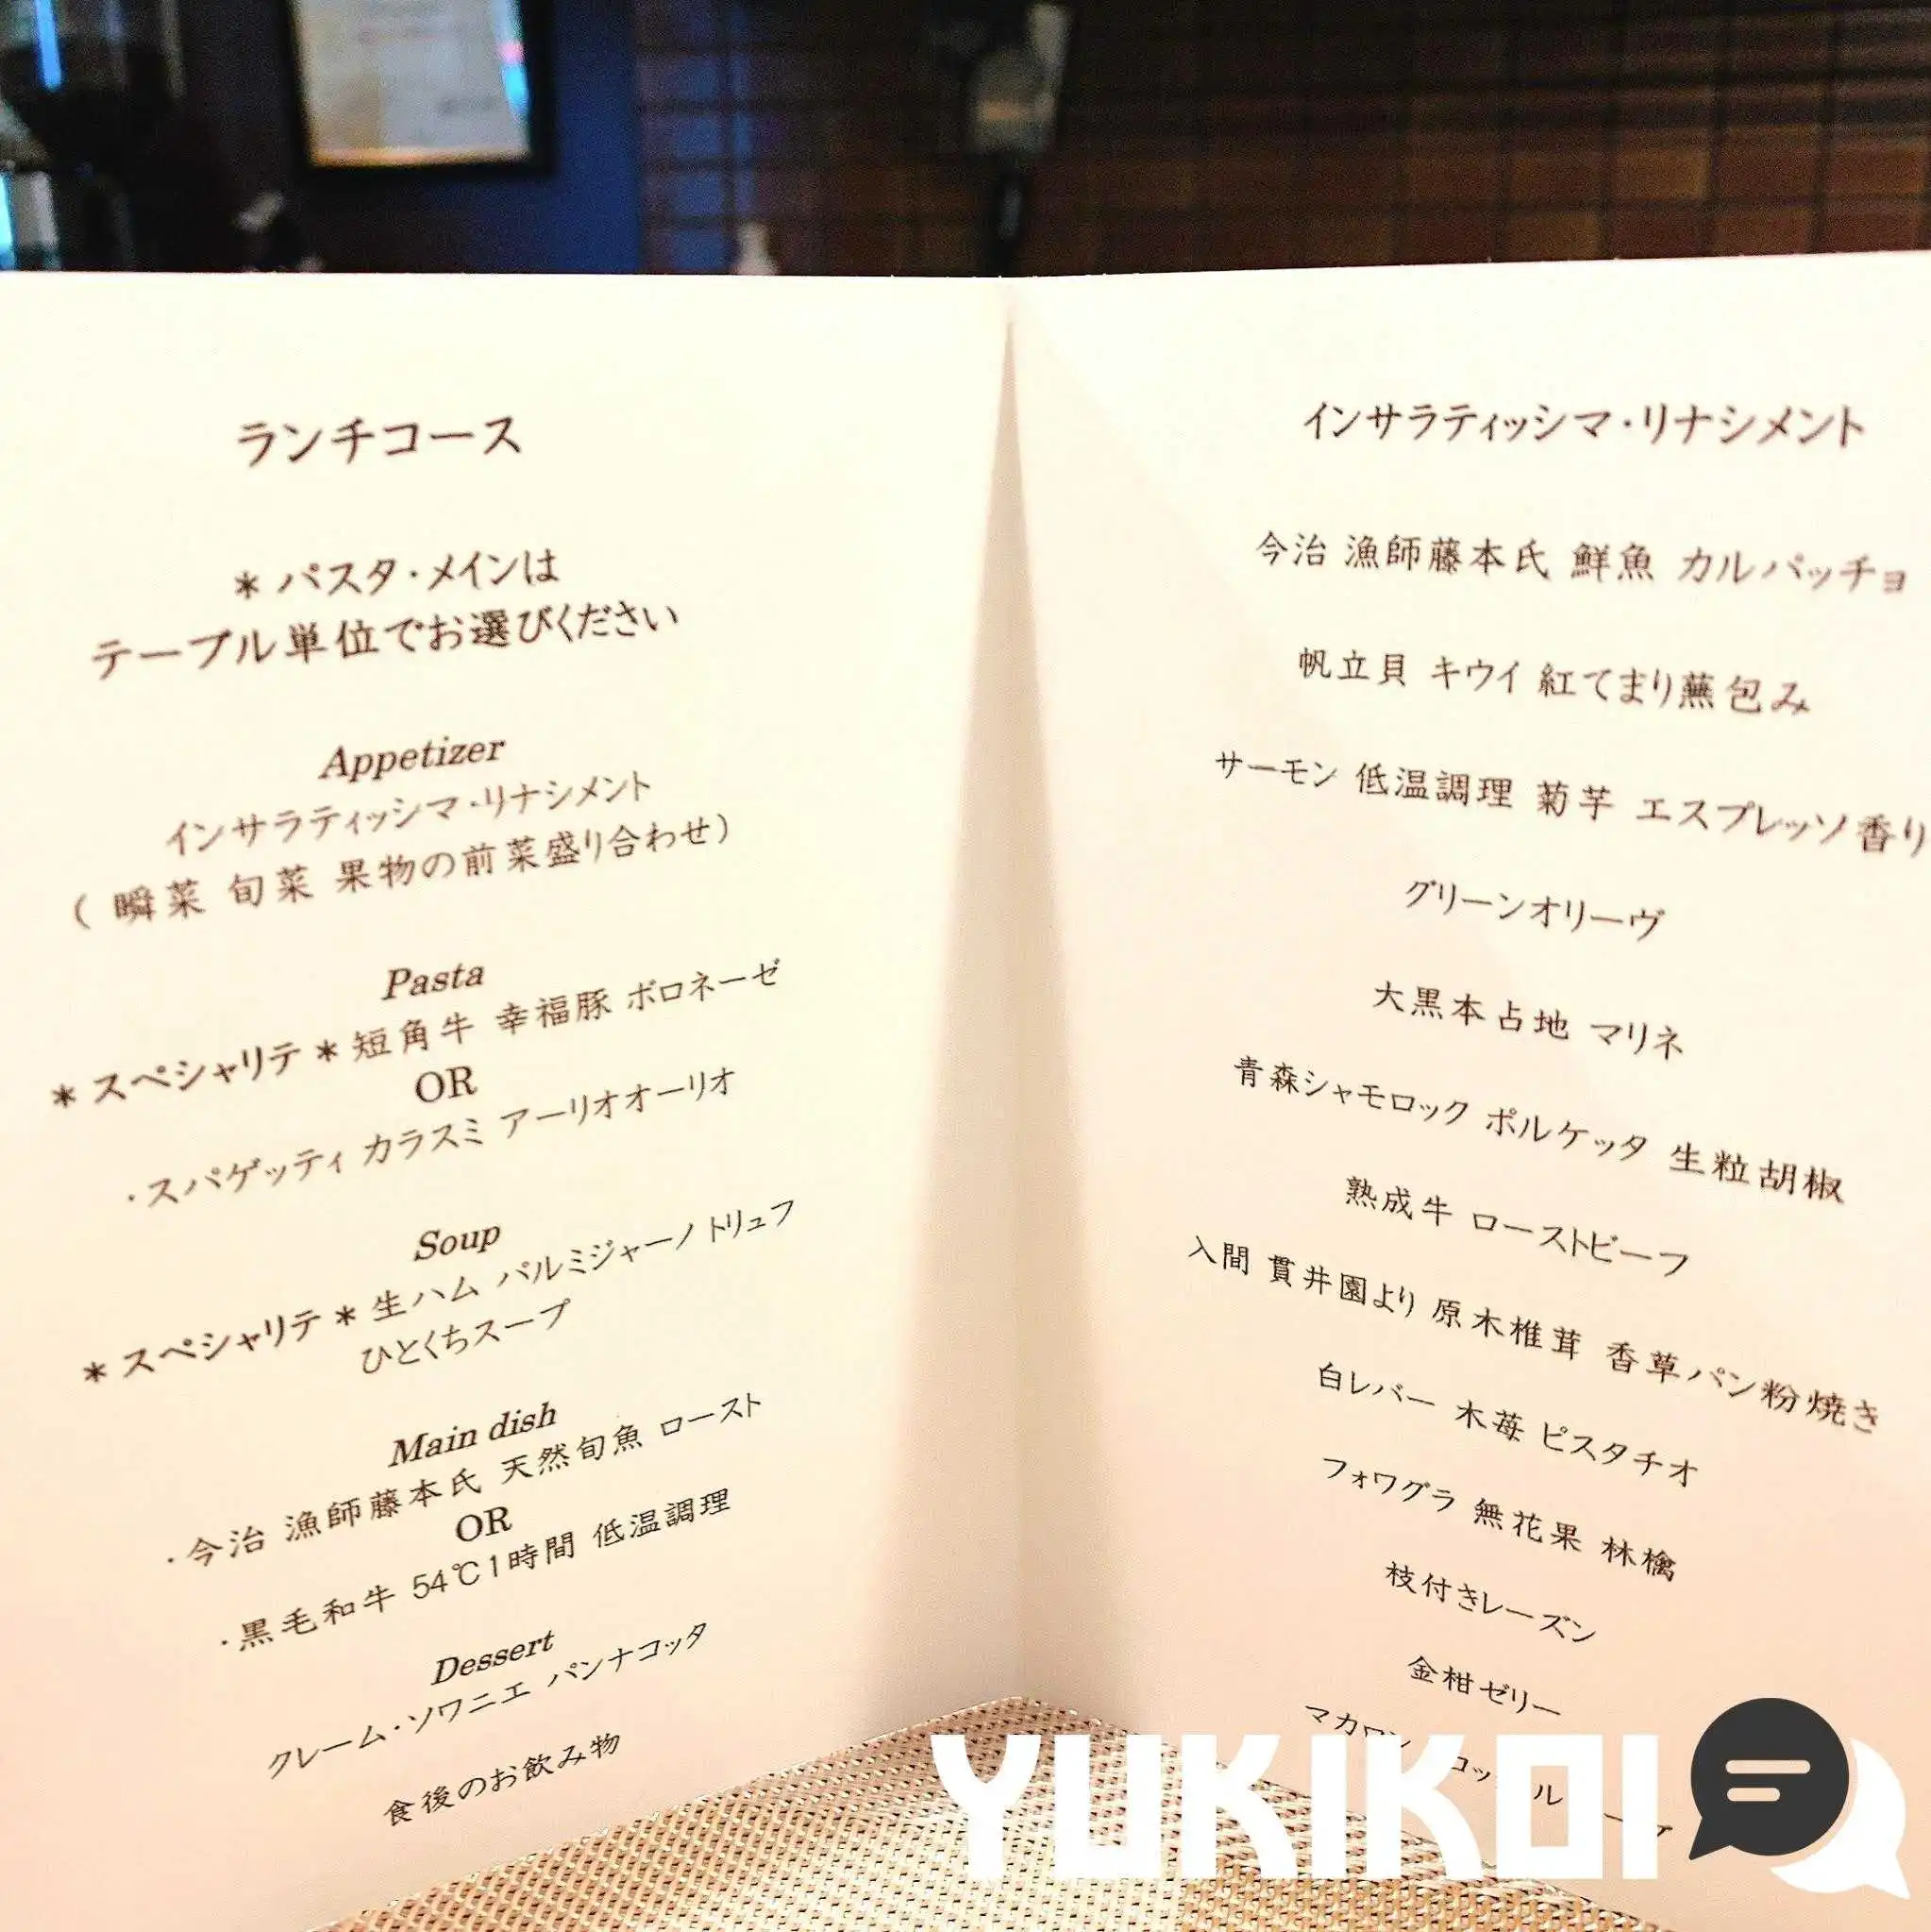 ランチコース
* パスタ・メインは
テーブル単位でお選びください
Appetizer
インサラティッシマ・リナシメント
( 瞬菜 旬菜 果物の前菜盛り合わせ)
Pasta
* スペシャリテ * 短角牛 幸福豚 ボロネーゼ
OR
・スパゲッティ カラスミ アーリオオーリオ
Soup
* スペシャリテ * 生ハム パルミジャーノ トリュフ
ひとくちスープ
Main dish
・今治 漁師藤本氏 天然旬魚 ロースト
OR
・黒毛和牛 54℃1時間 低温調理
Dessert
クレーム・ソワニエ パンナコッタ
食後のお飲み物
インサラティッシマ・リナシメント
今治 漁師藤本氏 鮮魚 カルパッチョ
帆立貝 キウイ 紅てまり蕪包み
サーモン 低温調理 菊芋 エスプレッソ香り
グリーンオリーヴ
大黒本占地 マリネ
青森シャモロック ポルケッタ 生粒胡椒
熟成牛 ローストビーフ
入間 貫井園より 原木椎茸 香草パン粉焼き
白レバー 木苺 ピスタチオ
フォワグラ 無花果 林檎
枝付きレーズン
金柑ゼリー
YUKIKOI